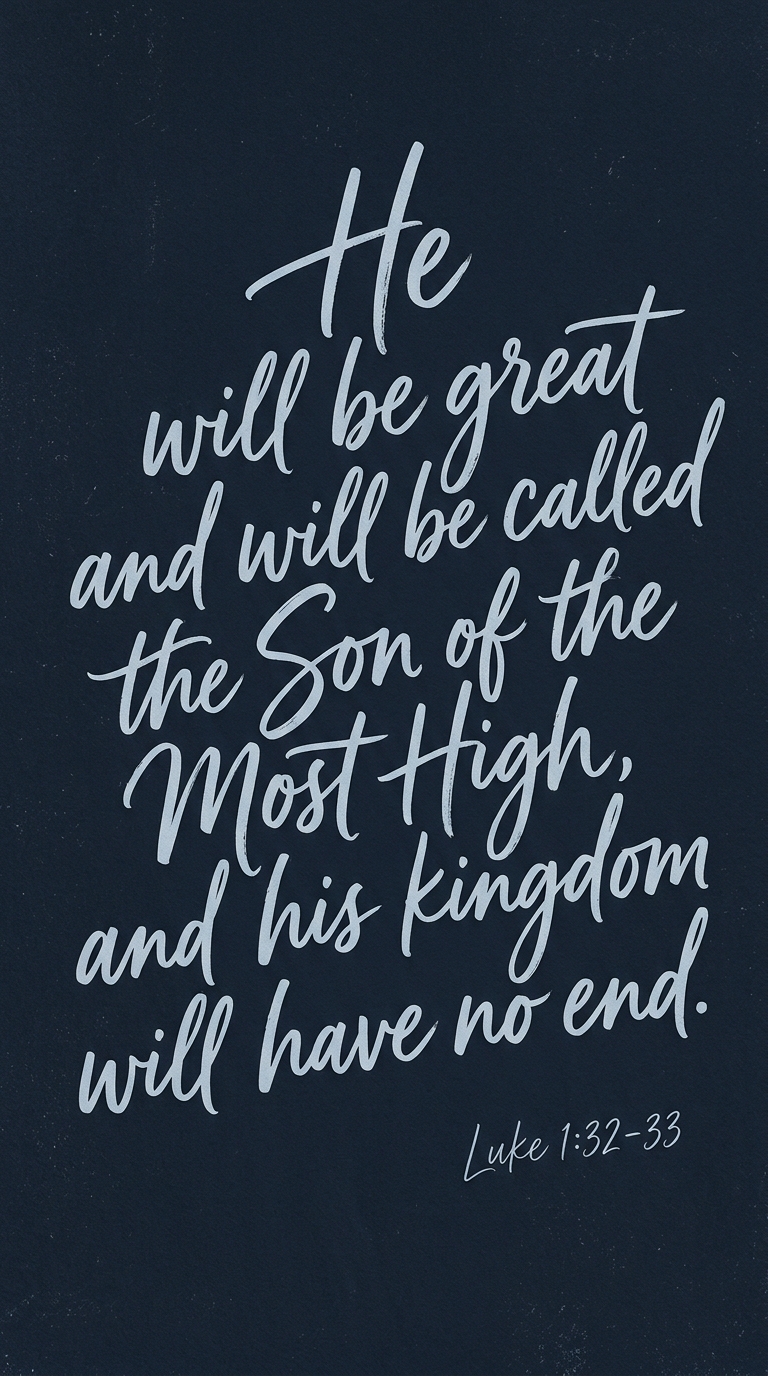 He
will be great
and will be called
the Son of the
Most High,
and his kingdom
will have no end.
Luke 1:32-33